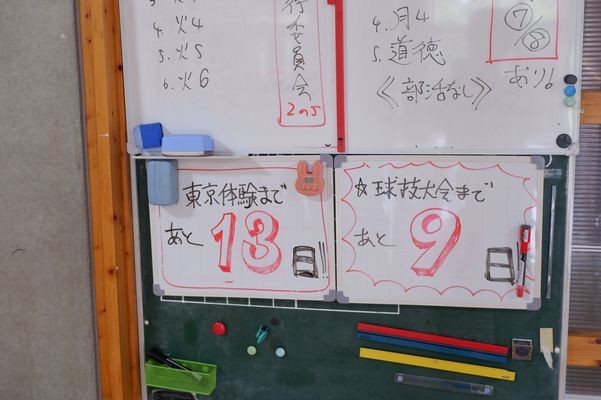 4. 火4
5. 火5
6. 火6
行委員会
2の5
4. 月4
5. 道徳
≪部活なし≫
7/8
あり。
東京体験まで
あと 13日!!
☆球技大会まで
あと 9日